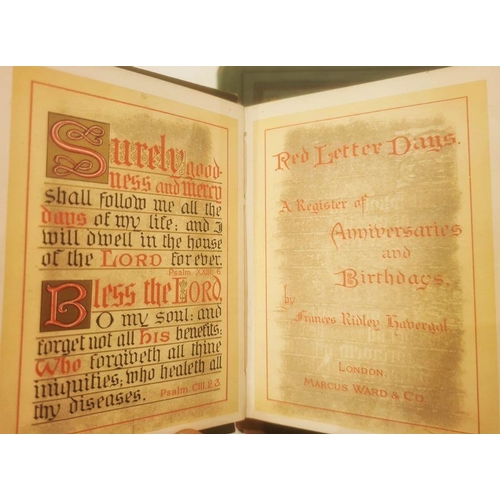 Surely good-
ness and mercy
shall follow me all the
days of my life: and I
will dwell in the house
of the LORD for ever.
Psalm. XXIII. 6.
Bless the LORD,
O my soul: and
forget not all his benefits;
Who forgiveth all thine
iniquities; who healeth all
thy diseases. Psalm CIII 2.3.
Red Letter Days.
A Register of
Anniversaries
and
Birthdays.
by
Frances Ridley Havergal.
LONDON:
MARCUS WARD & CO.